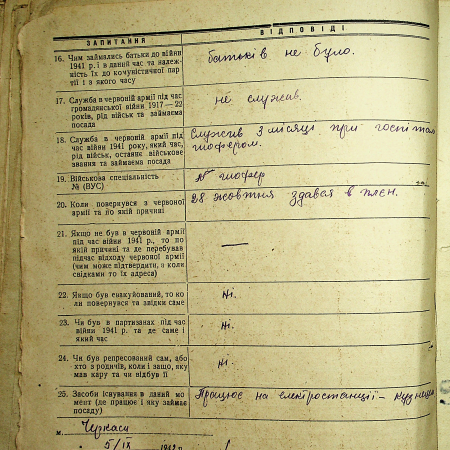 ЗАПИТАННЯ ВІДПОВІДІ
16. Чим займались батьки до війни
1941 р. і в даний час та належ-
ність їх до комуністичної пар
тії і з якого часу
батьків не було.
17. Служба в червоній армії під час
громадянської війни 1917—22
років, рід військ та займаєма
посада
не служив.
18. Служба в червоній армії під
час війни 1941 року, який час,
рід військ, останнє військове
звання та займаєма посада
Служив 3 місяці при госпіталі
шофером.
19. Військова спеціальність
№ (ВУС)
шофер
20. Коли повернувся з червоної
армії та по якій причині
28 жовтня здався в плєн.
21. Якщо не був в червоній армії
під час війни 1941 р., то по
якій причині та де перебував
підчас відходу червоної армії
(чим може підтвердити, а коли
свідками то їх адреса)
—
22. Якщо був евакуйований, то ко
ли повернувся та звідки саме
Ні.
23. Чи був в партизанах під час
війни 1941 р. та де саме і
який час
Ні.
24. Чи був репресований сам, або
хто з родичів, коли і защо, яку
мав кару та чи відбув її
Ні.
25. Засоби існування в даний мо
мент (де працює і яку займає
посаду)
Працює на електростанції –
м. Черкаси
5/IX 1942 р.